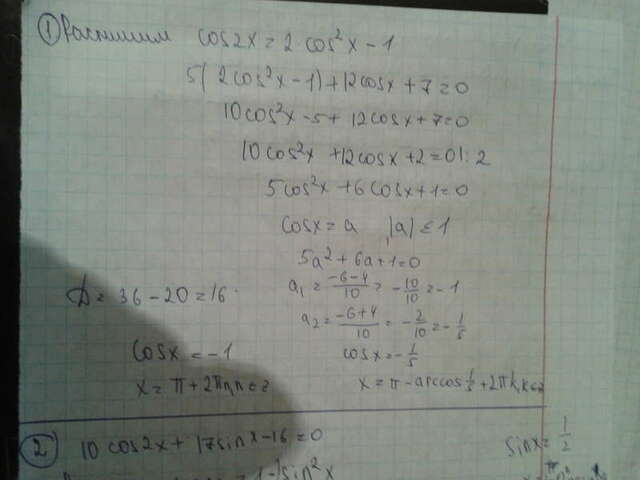 ① Распишем cos2x = 2·cos²x - 1
5(2cos²x - 1) + 12cosx + 7 = 0
10cos²x - 5 + 12cosx + 7 = 0
10cos²x + 12cosx + 2 = 0 |: 2
5cos²x + 6cosx + 1 = 0
cosx = a |a| ≤ 1
5a² + 6a + 1 = 0
D = 36 - 20 = 16 a₁ = (-6-4)/10 = -10/10 = -1
a₂ = (-6+4)/10 = -2/10 = -1/5
cosx = -1 cosx = -1/5
x = π + 2πn, n∈z x = π - arccos 1/5 + 2πk, k∈z
② 10cos2x + 17sinx - 16 = 0 sinx = 1/2